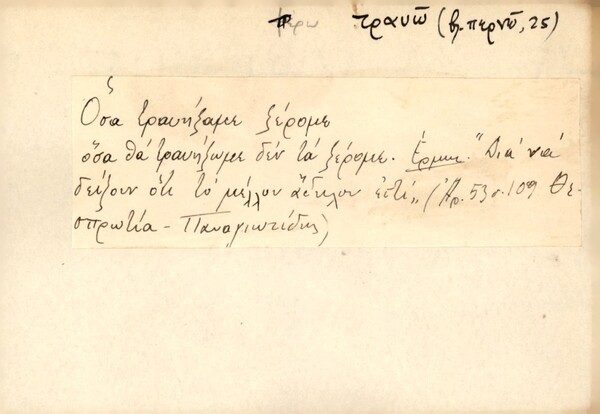 τραυῶ (βλ. περνῶ, 25)
Ὅσα τραυήξαμε ξέρομε
ὅσα θά τραυήξωμε δέν τά ξέρομε. Ἑρμην. "Διά νά
δείξουν ὅτι τό μέλλον ἄδηλον ἐστί„ (Ἀρ. 53 σ. 109 Θε-
σπρωτία - Παναγιωτίδης)